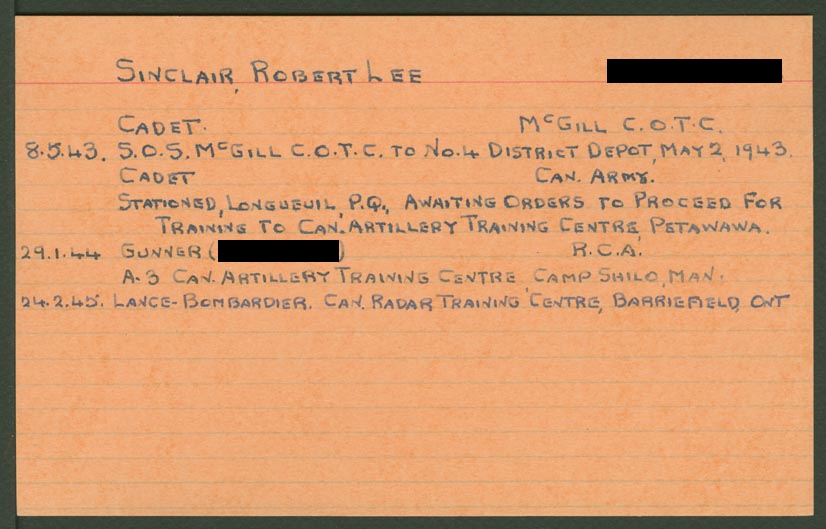 SINCLAIR, ROBERT LEE
CADET. McGILL C.O.T.C.
8.5.43. S.O.S. McGILL C.O.T.C. TO No.4 DISTRICT DEPOT, MAY 2, 1943.
CADET CAN. ARMY.
STATIONED, LONGUEUIL, P.Q., AWAITING ORDERS TO PROCEED FOR
TRAINING TO CAN. ARTILLERY TRAINING CENTRE, PETAWAWA.
29.1.44 GUNNER ( ) R.C.A.
A-3 CAN. ARTILLERY TRAINING CENTRE, CAMP SHILO, MAN.
24.2.45. LANCE-BOMBARDIER. CAN. RADAR TRAINING CENTRE, BARRIEFIELD, ONT